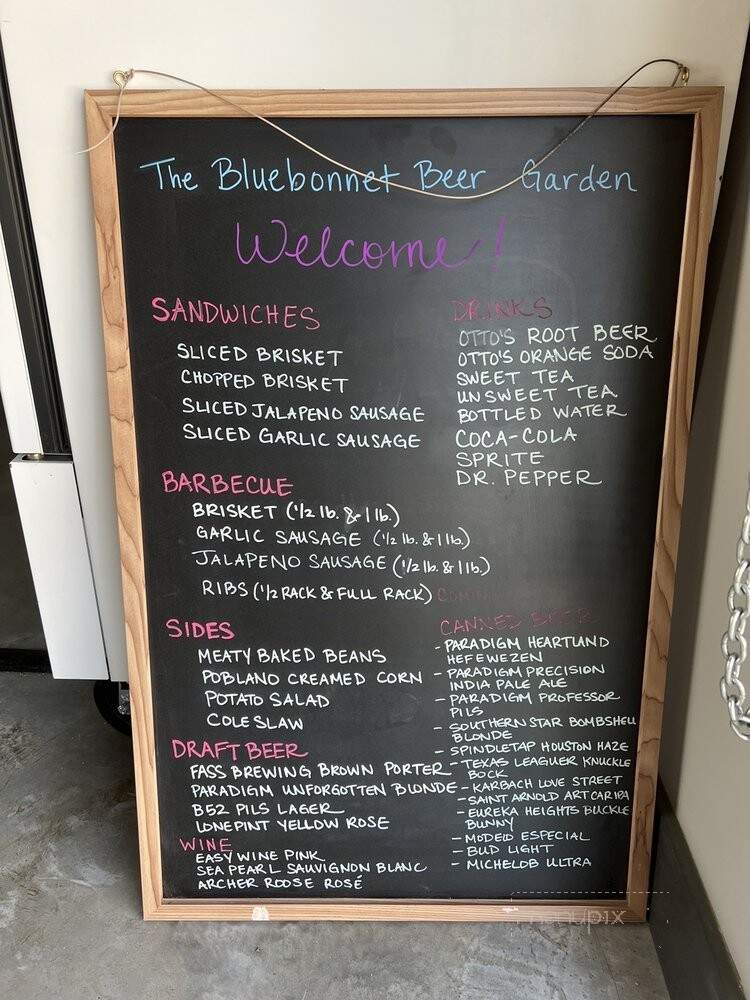 The Bluebonnet Beer Garden
Welcome!
SANDWICHES
SLICED BRISKET
CHOPPED BRISKET
SLICED JALAPENO SAUSAGE
SLICED GARLIC SAUSAGE
DRINKS
OTTO'S ROOT BEER
OTTO'S ORANGE SODA
SWEET TEA
UNSWEET TEA
BOTTLED WATER
COCA-COLA
SPRITE
DR. PEPPER
BARBECUE
BRISKET (1/2 lb. & 1 lb.)
GARLIC SAUSAGE (1/2 lb. & 1 lb.)
JALAPENO SAUSAGE (1/2 lb. & 1 lb.)
RIBS (1/2 RACK & FULL RACK)
SIDES
MEATY BAKED BEANS
POBLANO CREAMED CORN
POTATO SALAD
COLESLAW
DRAFT BEER
FASS BREWING BROWN PORTER
PARADIGM UNFORGOTTEN BLONDE
B52 PILS LAGER
LONEPINT YELLOW ROSE
WINE
EASY WINE PINK
SEA PEARL SAUVIGNON BLANC
ARCHER ROOSE ROSÉ
CANNED BEER
- PARADIGM HEARTLAND
HEFEWEZEN
- PARADIGM PRECISION
INDIA PALE ALE
- PARADIGM PROFESSOR
PILS
- SOUTHERN STAR BOMBSHELL
BLONDE
- SPINDLETAP HOUSTON HAZE
- TEXAS LEAGUER KNUCKLE
BOCK
- KARBACH LOVE STREET
- SAINT ARNOLD ART CAR IPA
- EUREKA HEIGHTS BUCKLE
BUNNY
- MODELO ESPECIAL
- BUD LIGHT
- MICHELOB ULTRA
menupix